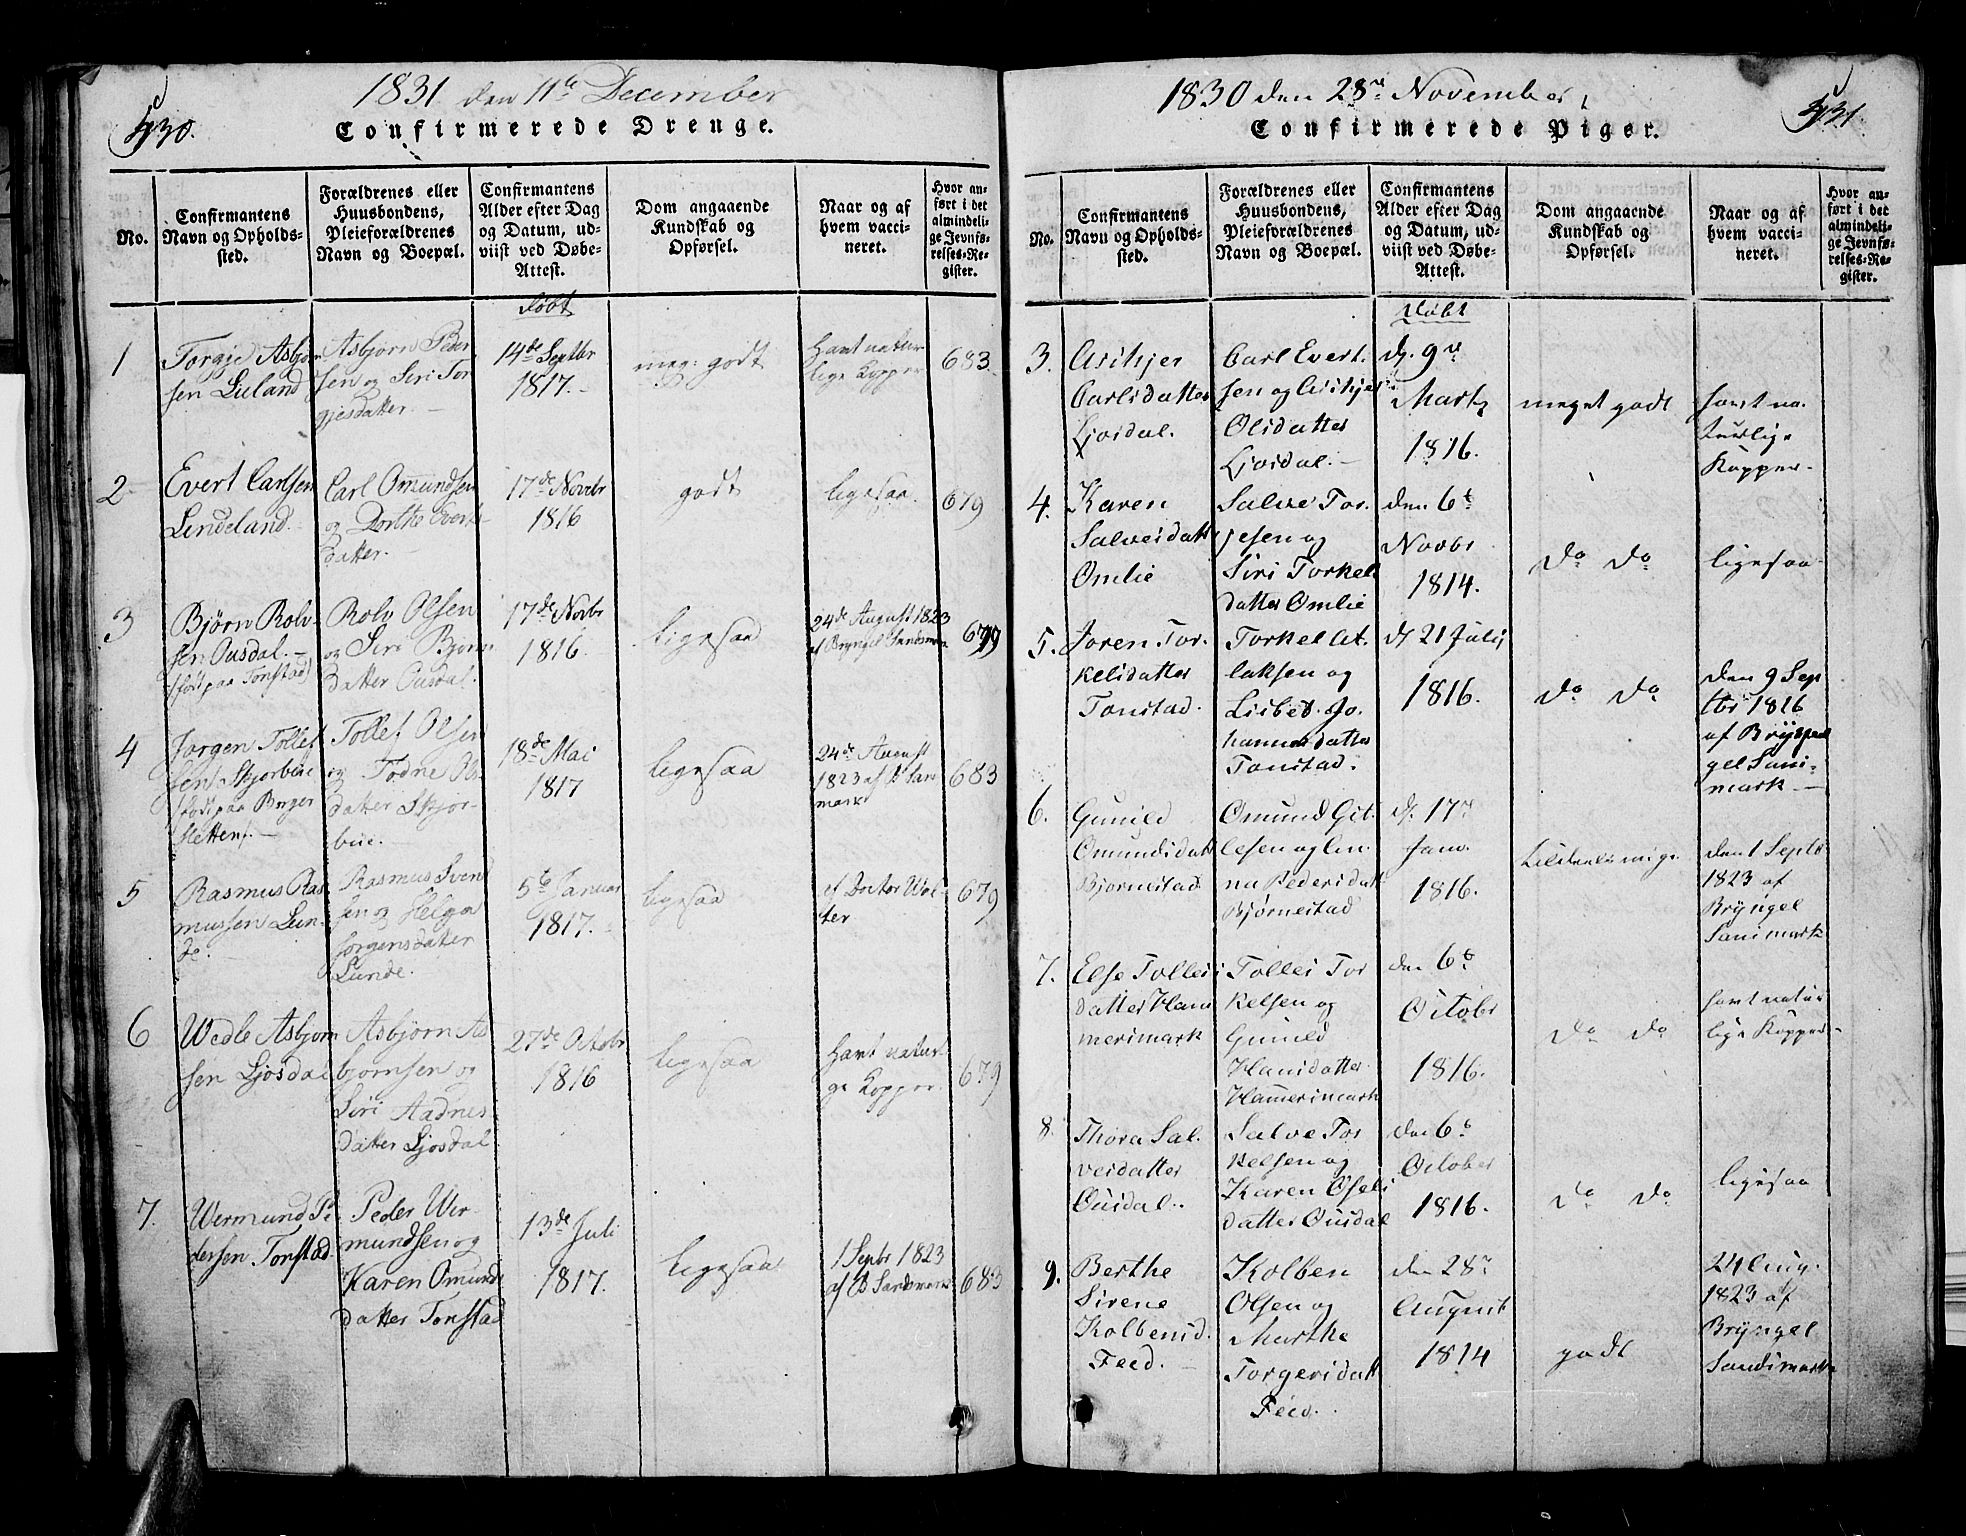 1831 den 11te December
430.
Confirmerede Drenge.
No.
Confirmantens
Navn og Opholds-
sted.
Forældrenes eller
Huusbondens,
Pleieforældrenes
Navn og Boepæl.
Confirmantens
Alder efter Dag
og Datum, ud-
viist ved Døbe-
Attest.
Dom angaaende
Kundskab og
Opførsel.
Naar og af
hvem vacci-
neret.
Hvor an-
ført i det
almindeli-
ge Jevnfø-
relses-Re-
gister.
Født
1
Torgje Asbjørn
sen Lieland
Asbjørn Peder
sen og Siri Tor
gjesdatter.
14de Septbr
1817.
meg: godt
Havt natur
lige Kopper
683
2
Evert Carlsen
Lindeland.
Carl Omundsen
og Dorthe Everts
datter.
17de Novbr
1816
godt
ligesaa.
679
3
Bjørn Rolv-
sen Ousdal.
(født paa Tonstad)
Rolv Olsen
og Siri Bjørns
datter Ousdal.
17de Novbr
1816.
ligesaa
24de August 1823
af Bryngel Sandsmark
679
4
Jørgen Tollef
sen Skjorbue
Tollef Olsen
og Todne Ols
datter Skjor-
bue.
18de Mai
1817
ligesaa
24de August
1823 af B San
mark
683
5
Rasmus Ras
mussen Lun-
de.
Rasmus Svend
sen og Helga
Jorgensdatter
Lunde.
5te Januar
1817.
ligesaa
af Doctor Wol-
ter
679
6
Wedle Asbjørn
sen Ljosdal
Asbjørn As
bjørnsen og
Siri Aadnes
datter Ljosdal.
27de Octobr
1816
ligesaa
Havt naturl
ge Kopper.
679
7.
Wermund Pe
dersen Tonstad
Peder Wer-
mundsen og
Karen Omunds
datter Tonstad
13de Juli
1817.
ligesaa
1 Septbr 1823
af B Sandsmark
683
1830 den 28de November,
431.
Confirmerede Piger.
No.
Confirmantens
Navn og Opholds-
sted.
Forældrenes eller
Huusbondens,
Pleieforældrenes
Navn og Boepæl.
Confirmantens
Alder efter Dag
og Datum, ud-
viist ved Døbe-
Attest.
Dom angaaende
Kundskab og
Opførsel.
Naar og af
hvem vacci-
neret.
Hvor an-
ført i det
almindeli-
ge Jevnfø-
relses-Re-
gister.
Født
3.
Carlsdatter
Ljosdal.
Carl Evert.
sen og
Olsdatter
Ljosdal.
d. 9de
Marts
1816.
meget godt
havt na.
turlige
Kopper.
4.
Karen
Salvesdatt
Omlie
Salve Tor.
jesen og
Siri Torkels
datter Omlie
den 6te
Novbr
1814.
Do Do
ligesaa
5.
Joren Tor.
kelsdatter
Tonstad.
Torkel At.
laksen og
Lisbet Jo.
hannesdatter
Tonstad.
d. 21 Julij
1816.
Do Do
den 9 Sep
tbr 1816
af Bryn
gel Sans-
mark.
6.
Gunild
Omundsdatt
Bjørnestad
Omund Git.
lesen og An.
na Pedersdatt
Bjørnestad
d. 17de
Janv.
1816.
den 1 Septb
1823 af
Bryngel
Sansmark
7.
Else Tolles
datter Ham
mersmark
Tolles Tor
kelsen og
Gunild
Hansdatter
Hamersmark
den 6te
October
1816.
Do Do
havt natur
lige Kopper
8.
Thora Sal.
vesdatter
Ousdal.
Salve Tor
kelsen og
Karen Osels
datter Ousdal
den 6te
October
1816.
Do Do
ligesaa
9.
Berthe
Sirene
Kolbensd.
Feed.
Kolben
Olsen og
Marthe
Torgersdatt
Feed.
den 28de
August
1814
godt
24 Aug.
1823 af
Bryngel
Sandsmark